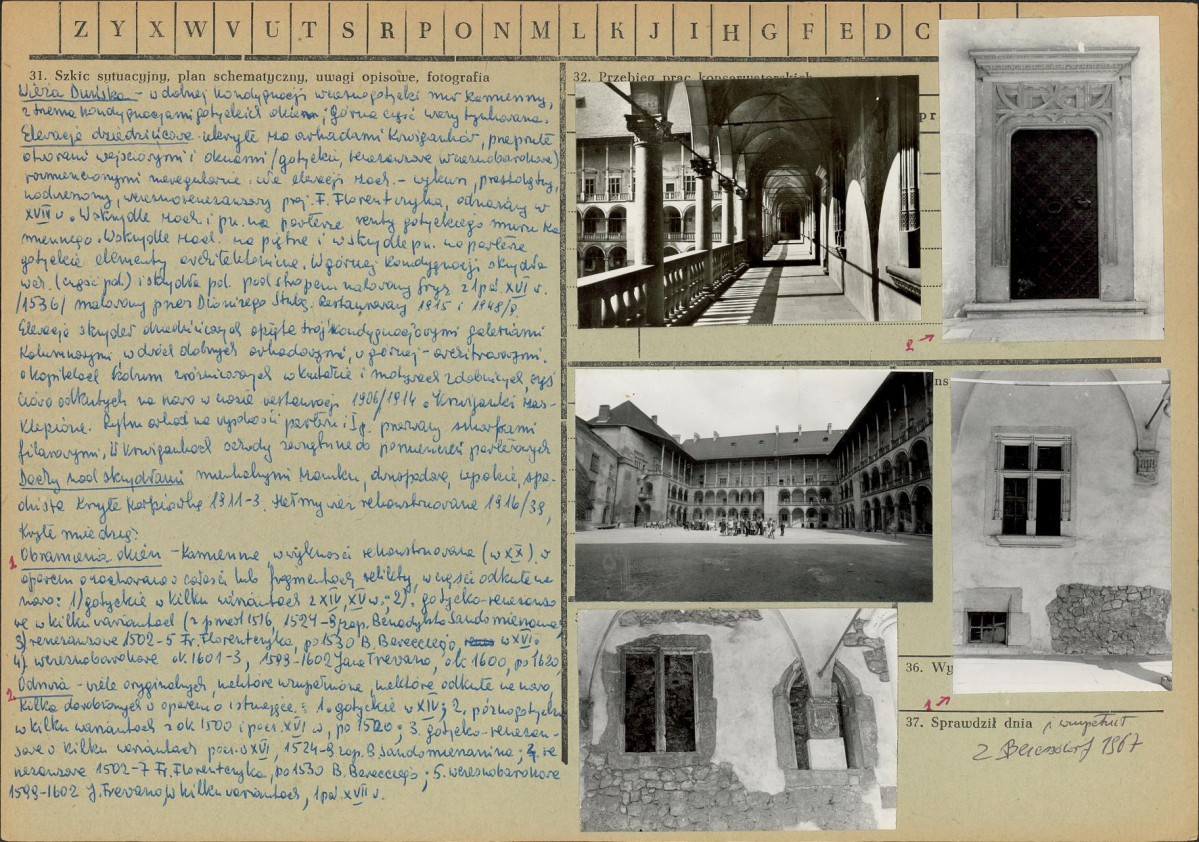 Z Y X W V U T S R P O N M L K J I H G F E D C
31. Szkic sytuacyjny, plan schematyczny, uwagi opisowe, fotografia
Wieża Duńska – w dolnej kondygnacji wczesnogotycki mur kamienny,
z trzema kondygnacjami gotyckich okien, górna część wieży tynkowana.
Elewacje dziedzińcowe ukryte za arkadami krużganków, przeprute
otworami wejściowymi i oknami /gotyckie, renesansowe wczesnobarokowe/
rozmieszczonymi nieregularnie. W elewacji zach. – wykusz, prostokątny,
nadwieszony, wczesnorenesansowy proj. F. Florentczyka, odnawiany w
XVII w. W skrzydle zach. i pn. na parterze reszty gotyckiego muru ka
miennego. W skrzydle zach. na piętrze i w skrzydle pn. na parterze
gotyckie elementy architektoniczne. W górnej kondygnacji skrzydła
wsch. (część pd.) i skrzydła pd. pod stropem malowany fryz z 1 poł. XVI w.
/1536/ malowany przez Dionizego Stubę. Restaurowany 1915 i 1948/9.
Elewacje skrzydeł dziedzińcowych opięte trójkondygnacjowymi galeriami
kolumnowymi, w dwóch dolnych arkadowymi, w górnej – architrawowymi.
o kapitelach kolumn zróżnicowanych w kształcie i motywach zdobniczych, część
ciowo odkutych na nowo w czasie restauracji 1906/1914. Krużganki zas
klepione. Rytm arkad na wysokości parteru i I p. przerwany szkarpami
filarowymi, w krużgankach schody zewnętrzne do pomieszczeń parterowych
Dachy nad skrzydłami mieszkalnymi zamku, dwuspadowe, wysokie, spa-
dziste kryte karpiówką 1911-3. Hełmy wież rekonstruowane 1916/39,
kryte miedzią.
1 Obramienia okien – kamienne w większości rekonstruowane (w XX) w
oparciu o zachowane w całości lub fragmentach relikty, w części odkute na
nowo: 1) gotyckie w kilku wariantach z XIV, XV w.; 2). gotycko-renesanso
we w kilku wariantach (z przed 1516, 1524-9, zap. Benedykta Sandomierzanina,
3) renesansowe 1502-5 Fr. Florentczyka, po 1530 B. Berecciego, w XVI.
4) wczesnobarokowe ok. 1601-3, 1599-1602 Jana Trevano, ok. 1600, po 1620
2 Odrzwia – wiele oryginalnych, niektóre uzupełnione, niektóre odkute na nowo,
kilka dorobionych w oparciu o istniejące. : 1. gotyckie w XIV; 2. późnogotyckie
w kilku wariantach z ok 1500 i pocz. XVI w, po 1520; 3. gotycko-renesan-
sowe w kilku wariantach pocz. w XVI, 1524-9 zap. B. Sandomierzanina; 4. re
nesansowe 1502-7 Fr. Florentczyka, po 1530 B. Berecciego; 5. wczesnobarokowe
1599-1602 J. Trevano, w kilku wariantach, 1 poł. XVII w.
32. Przebieg prac konserwatorskich
pr
2
ns
36. Wy
1
37. Sprawdził dnia
uzupełnił
1967